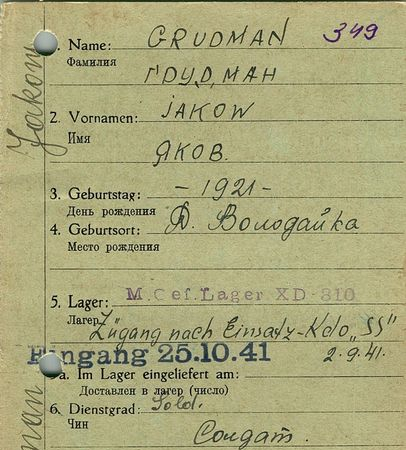 1. Name: GRUDMAN 349
Фамилия ГРУДМАН
2. Vornamen: JAKOW
Имя ЯКОВ.
3. Geburtstag: - 1921 -
День рождения
4. Geburtsort: Д. Володайка
Место рождения
5. Lager: M. Gef. Lager XD 310
Лагер Zugang nach Einsatz-Kdo „SS"
Eingang 25.10.41 2.9.41.
a. Im Lager eingeliefert am:
Доставлен в лагер (число)
6. Dienstgrad: Sold.
Чин Солдат.
Jakow